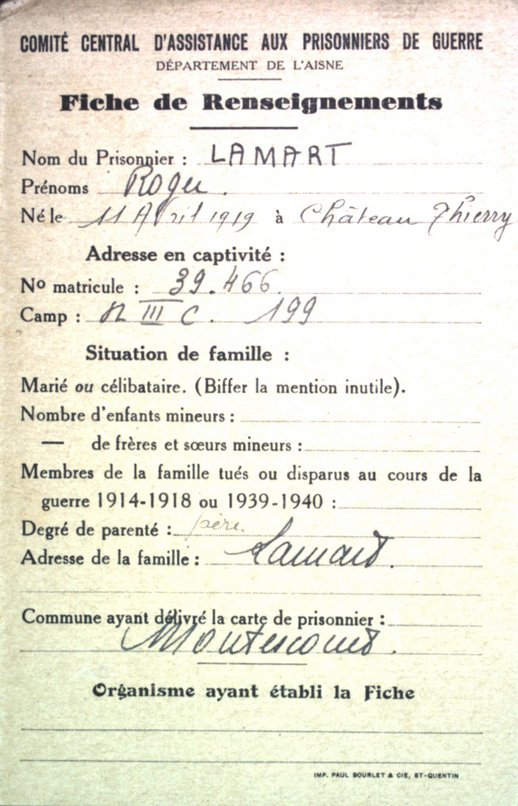 COMITÉ CENTRAL D'ASSISTANCE AUX PRISONNIERS DE GUERRE
DÉPARTEMENT DE L'AISNE
Fiche de Renseignements
Nom du Prisonnier : LAMART
Prénoms Roger.
Né le 11 Avril 1919 à Château Thierry
Adresse en captivité :
No matricule : 39.466.
Camp : III C. 199
Situation de famille :
Marié ou célibataire. (Biffer la mention inutile).
Nombre d'enfants mineurs :
— de frères et sœurs mineurs :
Membres de la famille tués ou disparus au cours de la
guerre 1914-1918 ou 1939-1940 :
Degré de parenté : père
Adresse de la famille : Lamart.
Commune ayant délivré la carte de prisonnier :
Montescourt.
Organisme ayant établi la Fiche
IMP. PAUL BOURLET & CIE, ST-QUENTIN